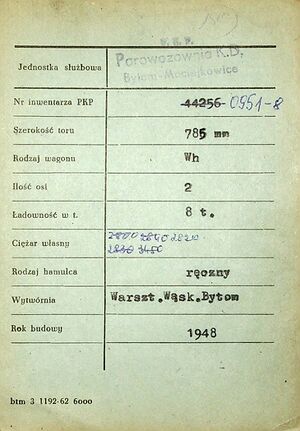 P. K. P.
Parowozownia K.D.
Jednostka służbowa
Bytom-Maciejkowice
Nr inwentarza PKP 44256 0951-8
Szerokość toru 785 mm
Rodzaj wagonu Wh
Ilość osi 2
Ładowność w t. 8 t.
Ciężar własny 2800 2840 2820
2830 3450
Rodzaj hamulca ręczny
Wytwórnia Warszt.Wąsk.Bytom
Rok budowy 1948
btm 3 1192-62 6000